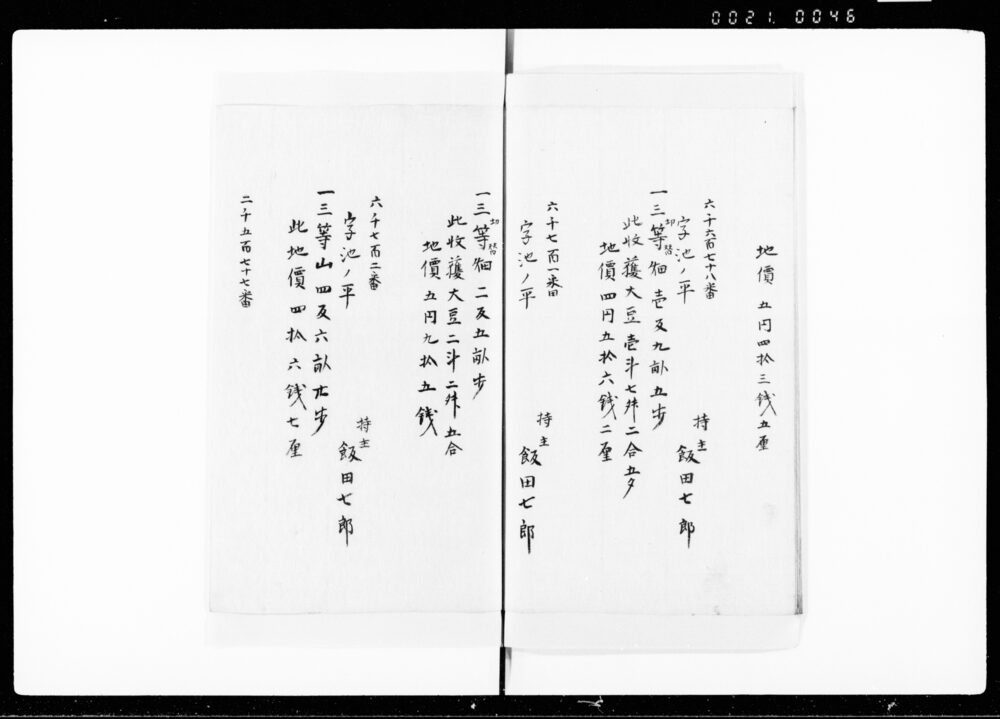 0021. 0046
地價 五円四拾三銭五厘
六千六百七十八番
字池ノ平
持主 飯田七郎
一三等切替畑 壱反九畝五歩
此収穫大豆壱斗七舛二合五夕
地價四円五拾六銭二厘
六千七百一番
字池ノ平
持主 飯田七郎
一三等切替畑 二反五畝歩
此收穫大豆二斗二舛五合
地價五円九拾五銭
六千七百二番
字池ノ平
持主 飯田七郎
一三等山四反六畝廿歩
此地價四拾六銭七厘
二千五百七十七番